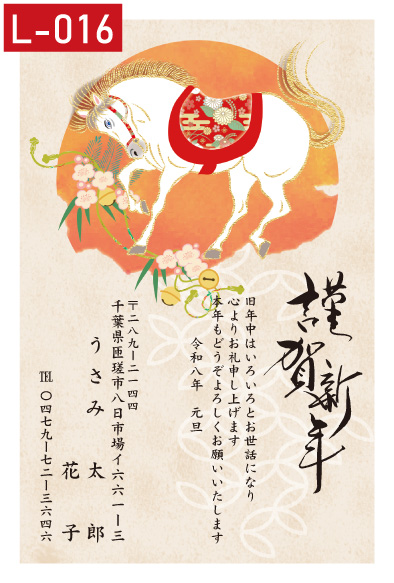 L-016
謹賀新年
旧年中はいろいろとお世話になり
心よりお礼申し上げます
本年もどうぞよろしくお願いいたします
令和八年 元旦
〒二八九ー二一四四
千葉県匝瑳市八日市場イ六六一ー三
うさみ 太郎
花子
℡ 〇四七九ー七二ー三六四六